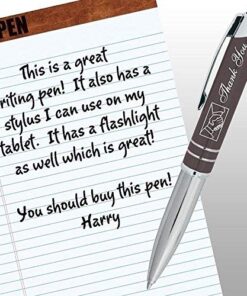 PEN
This is a great
riting pen! It also has a
stylus I can use on my
tablet. It has a flashlight
as well which is great!
You should buy this pen!
Harry
Thank You